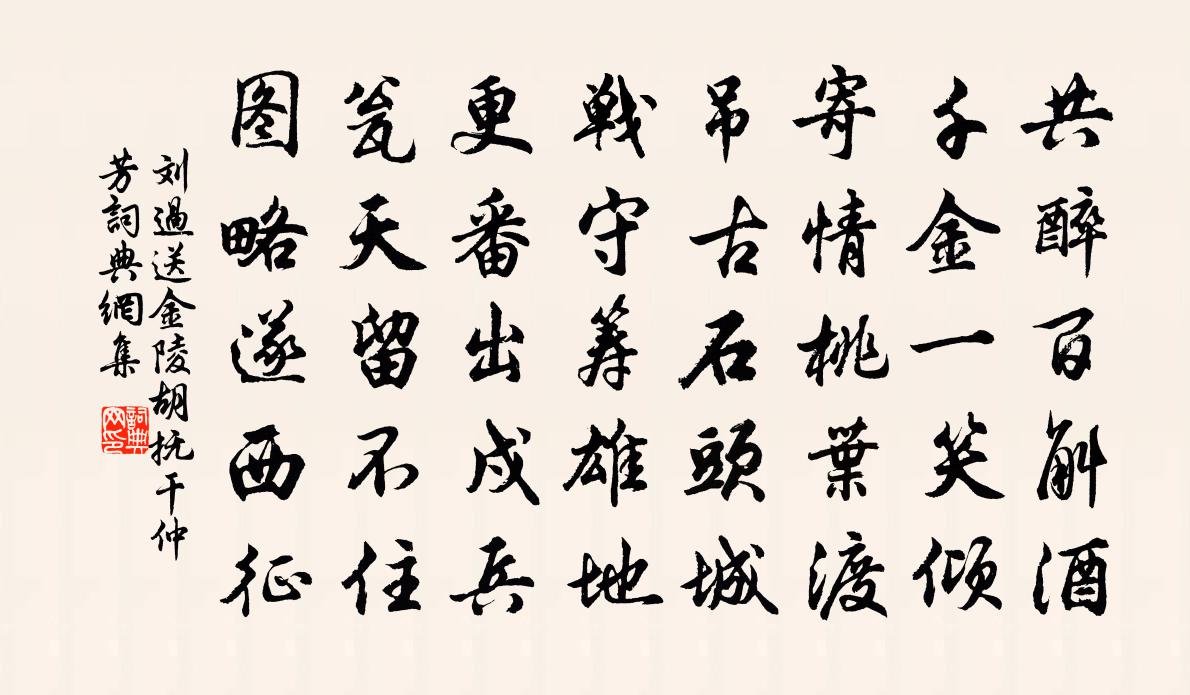 共醉百斛酒
千金一笑倾
寄情桃葉渡
吊古石頭城
戦守筹雄地
更番出戍兵
瓮天留不住
图略遂西征
刘過送金陵胡抚干仲
芳詞典網集
詞典网印